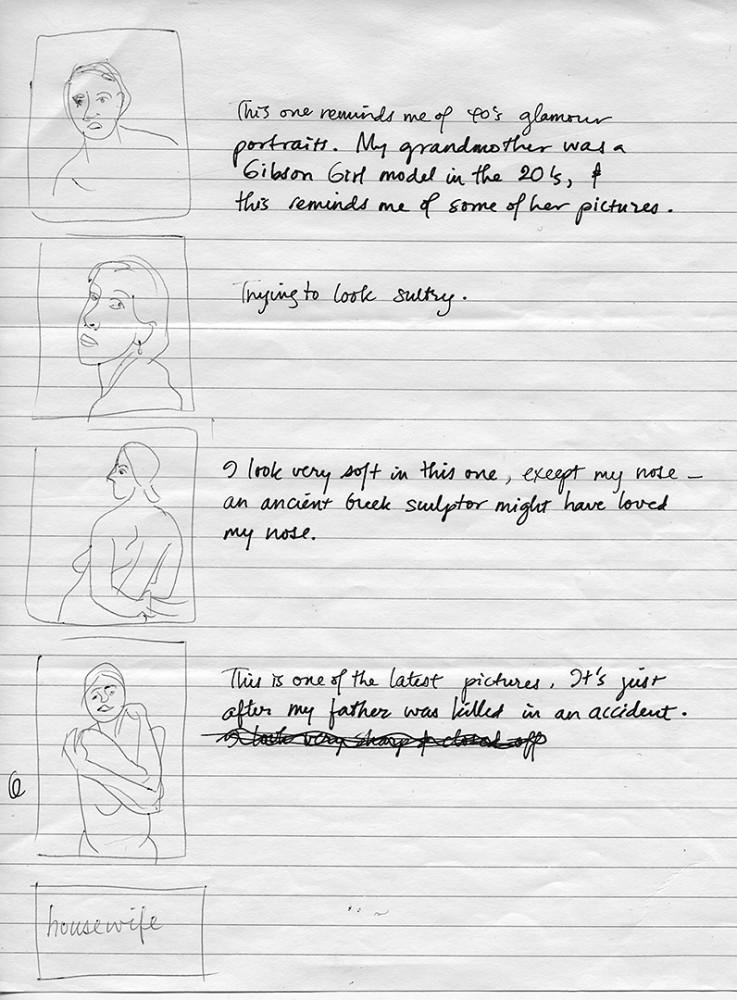 This one reminds me of 40's glamour
portraits. My grandmother was a
Gibson Girl model in the 20's, &
this reminds me of some of her pictures.
Trying to look sultry.
I look very soft in this one, except my nose –
an ancient Greek sculptor might have loved
my nose.
This is one of the latest pictures. It's just
after my father was killed in an accident.
I look very sharp & closed off
6
housewife